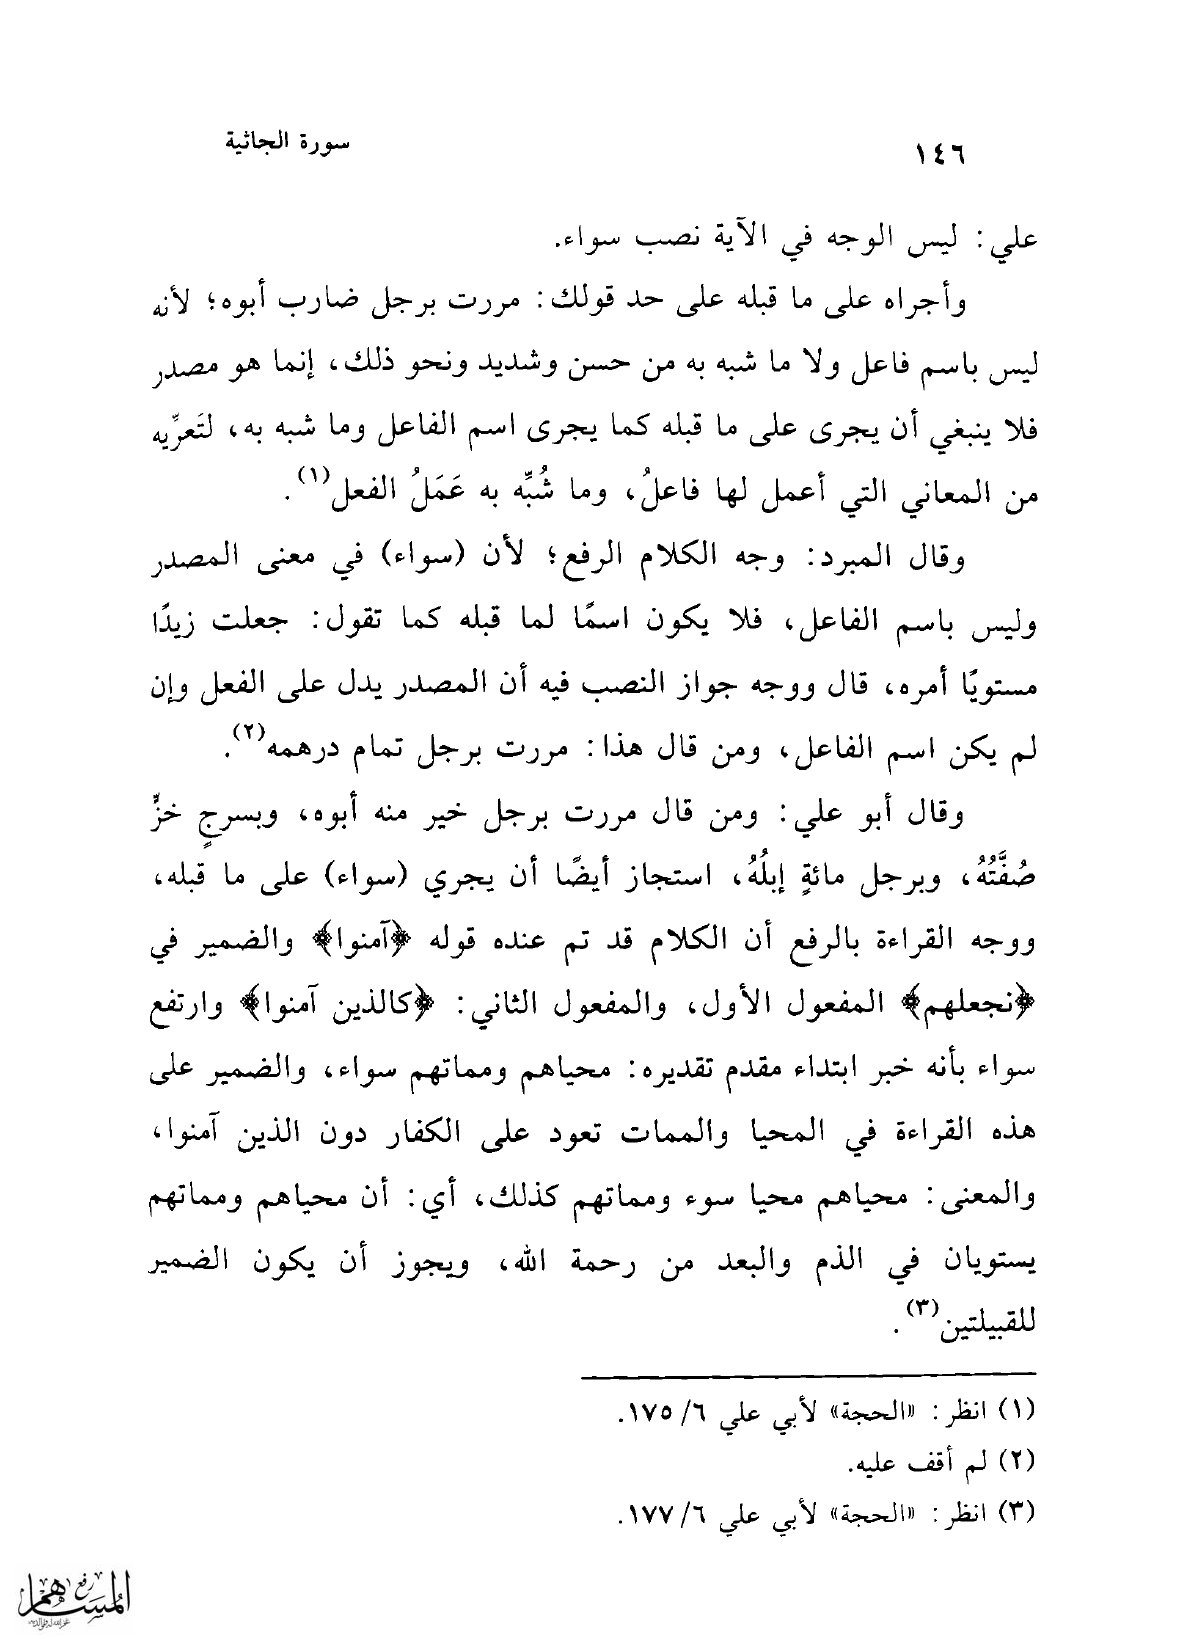 ١٤٦
سورة الجاثية
علي: ليس الوجه في الآية نصب سواء.
وأجراه على ما قبله على حد قولك: مررت برجل ضارب أبوه؛ لأنه
ليس باسم فاعل ولا ما شبه به من حسن وشديد ونحو ذلك، إنما هو مصدر
فلا ينبغي أن يجرى على ما قبله كما يجرى اسم الفاعل وما شبه به، لتَعرِّيه
من المعاني التي أعمل لها فاعلُ، وما شُبِّه به عَمَلُ الفعل(١).
وقال المبرد: وجه الكلام الرفع؛ لأن (سواء) في معنى المصدر
وليس باسم الفاعل، فلا يكون اسمًا لما قبله كما تقول: جعلت زيدًا
مستويًا أمره، قال ووجه جواز النصب فيه أن المصدر يدل على الفعل وإن
لم يكن اسم الفاعل، ومن قال هذا: مررت برجل تمام درهمه(٢).
وقال أبو علي: ومن قال مررت برجل خير منه أبوه، وبسرجٍ خزٍّ
صُفَّتُهُ، وبرجل مائةٍ إبلُهُ، استجاز أيضًا أن يجري (سواء) على ما قبله،
ووجه القراءة بالرفع أن الكلام قد تم عنده قوله ﴿آمنوا﴾ والضمير في
﴿نجعلهم﴾ المفعول الأول، والمفعول الثاني: ﴿كالذين آمنوا﴾ وارتفع
سواء بأنه خبر ابتداء مقدم تقديره: محياهم ومماتهم سواء، والضمير على
هذه القراءة في المحيا والممات تعود على الكفار دون الذين آمنوا،
والمعنى: محياهم محيا سوء ومماتهم كذلك، أي: أن محياهم ومماتهم
يستويان في الذم والبعد من رحمة الله، ويجوز أن يكون الضمير
للقبيلتين(٣).
(١) انظر: «الحجة» لأبي علي ٦/ ١٧٥.
(٢) لم أقف عليه.
(٣) انظر: «الحجة» لأبي علي ٦/ ١٧٧.
رفع
المساهم